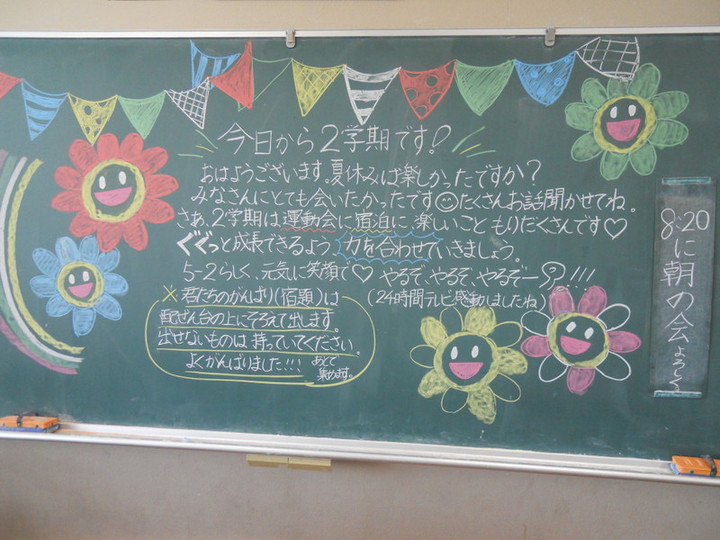 今日から2学期です!
おはようございます。夏休みは楽しかったですか?
みなさんにとても会いたかったです☺たくさんお話聞かせてね。
さあ、2学期は運動会に宿泊に楽しいこともりだくさんです♡
ぐぐっと成長できるよう、力を合わせていきましょう。
5-2らしく、元気に笑顔で♡ やるぞ、やるぞ、やるぞー!!!
(24時間テレビ感動しましたね)
※君たちのがんばり(宿題)は
配ぜん台の上にそろえて出します。
出せないものは持っていてください。
よくがんばりました!!! あとで
集めます。
8:20に朝の会よろしく